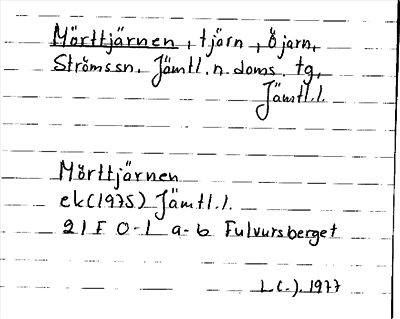 Mörttjärnen, tjärn, Öjarn,
Strömssn. Jämtl. n. doms. tg,
Jämtl.l.
Mörttjärnen
ek(1975) Jämtl.l.
21F 0-1 a-b Fulvursberget
L(-). 1977